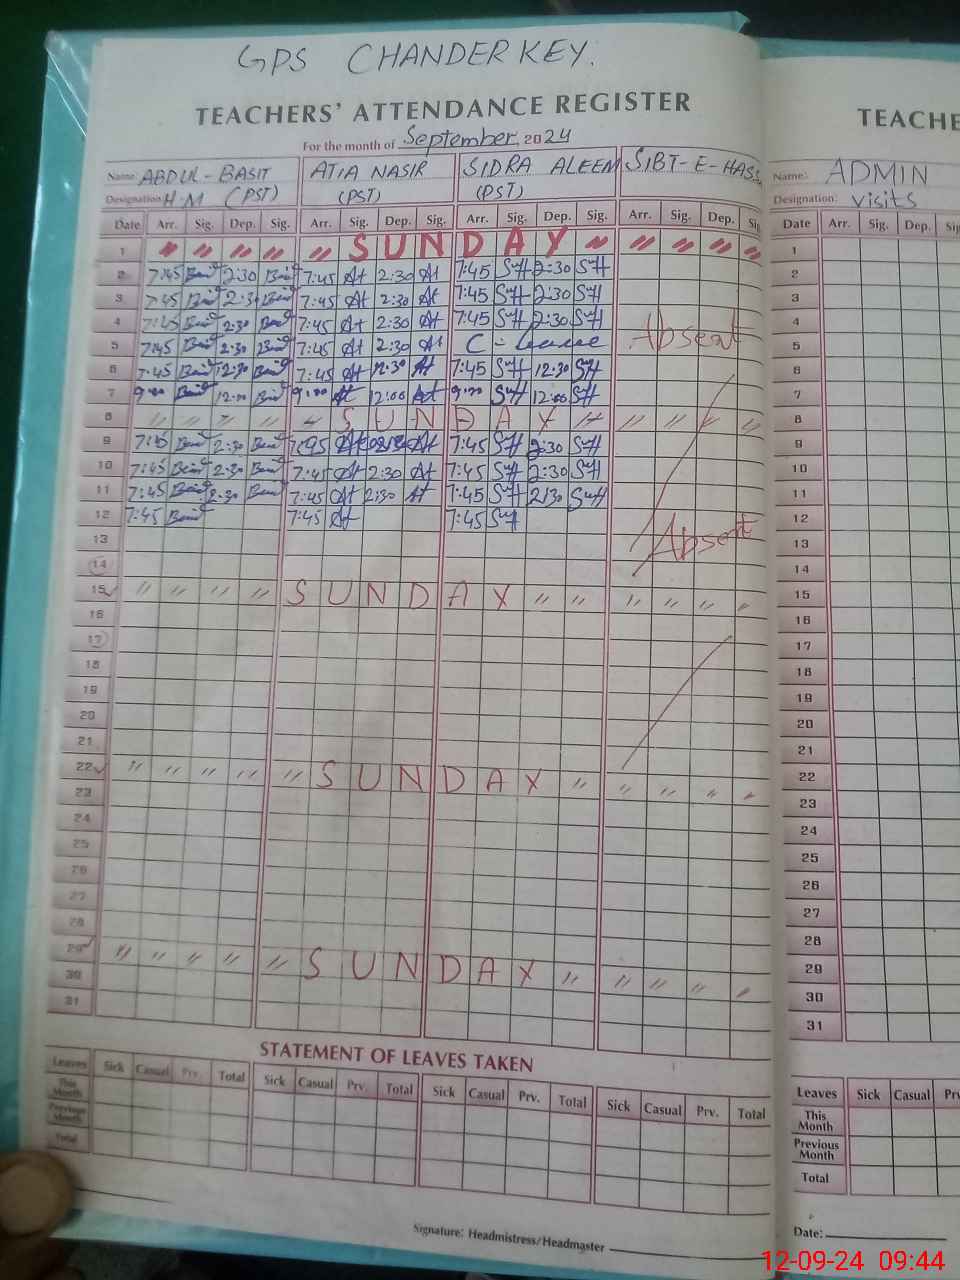 GPS CHANDERKEY.
TEACHERS' ATTENDANCE REGISTER
For the month of September, 2024
Name ABDUL-BASIT ATIA NASIR SIDRA ALEEM SIBT-E-HASS
Designation H M (PST) (PST) (PST)
Date Arr. Sig. Dep. Sig. Arr. Sig. Dep. Sig. Arr. Sig. Dep. Sig. Arr. Sig. Dep. Sig
1 〃 〃 〃 〃 〃 S U N D A Y 〃 〃 〃 〃 〃
2 7:45 2:30 7:45 At 2:30 At 7:45 2:30
3 7:45 2:30 7:45 At 2:30 At 7:45 2:30
4 7:45 2:30 7:45 At 2:30 At 7:45 2:30 Absent
5 7:45 2:30 7:45 At 2:30 At C-leave
6 7:45 12:30 7:45 At 12:30 At 7:45 12:30
7 9:00 12:00 9:00 At 12:00 At 9:00 12:00
8 〃 〃 〃 〃 〃 S U N D A Y 〃 〃 〃 〃 〃
9 7:45 2:30 At At 7:45 2:30
10 7:45 2:30 7:45 At 2:30 At 7:45 2:30
11 7:45 2:30 7:45 At 2:30 At 7:45 2:30
12 7:45 7:45 At 7:45
13 Absent
14
15 〃 〃 〃 〃 S U N D A Y 〃 〃 〃 〃 〃 〃
16
17
18
19
20
21
22 〃 〃 〃 〃 〃 S U N D A Y 〃 〃 〃 〃 〃
23
24
25
26
27
28
29 〃 〃 〃 〃 〃 S U N D A Y 〃 〃 〃 〃 〃
30
31
STATEMENT OF LEAVES TAKEN
Leaves Sick Casual Prv. Total Sick Casual Prv. Total Sick Casual Prv. Total Sick Casual Prv. Total
This Month
Previous Month
Total
Signature: Headmistress/Headmaster
TEACHE
Name: ADMIN
Designation: visits
Date Arr. Sig. Dep. Sig
1
2
3
4
5
6
7
8
9
10
11
12
13
14
15
16
17
18
19
20
21
22
23
24
25
26
27
28
29
30
31
Leaves Sick Casual Prv
This Month
Previous Month
Total
Date:
12-09-24 09:44